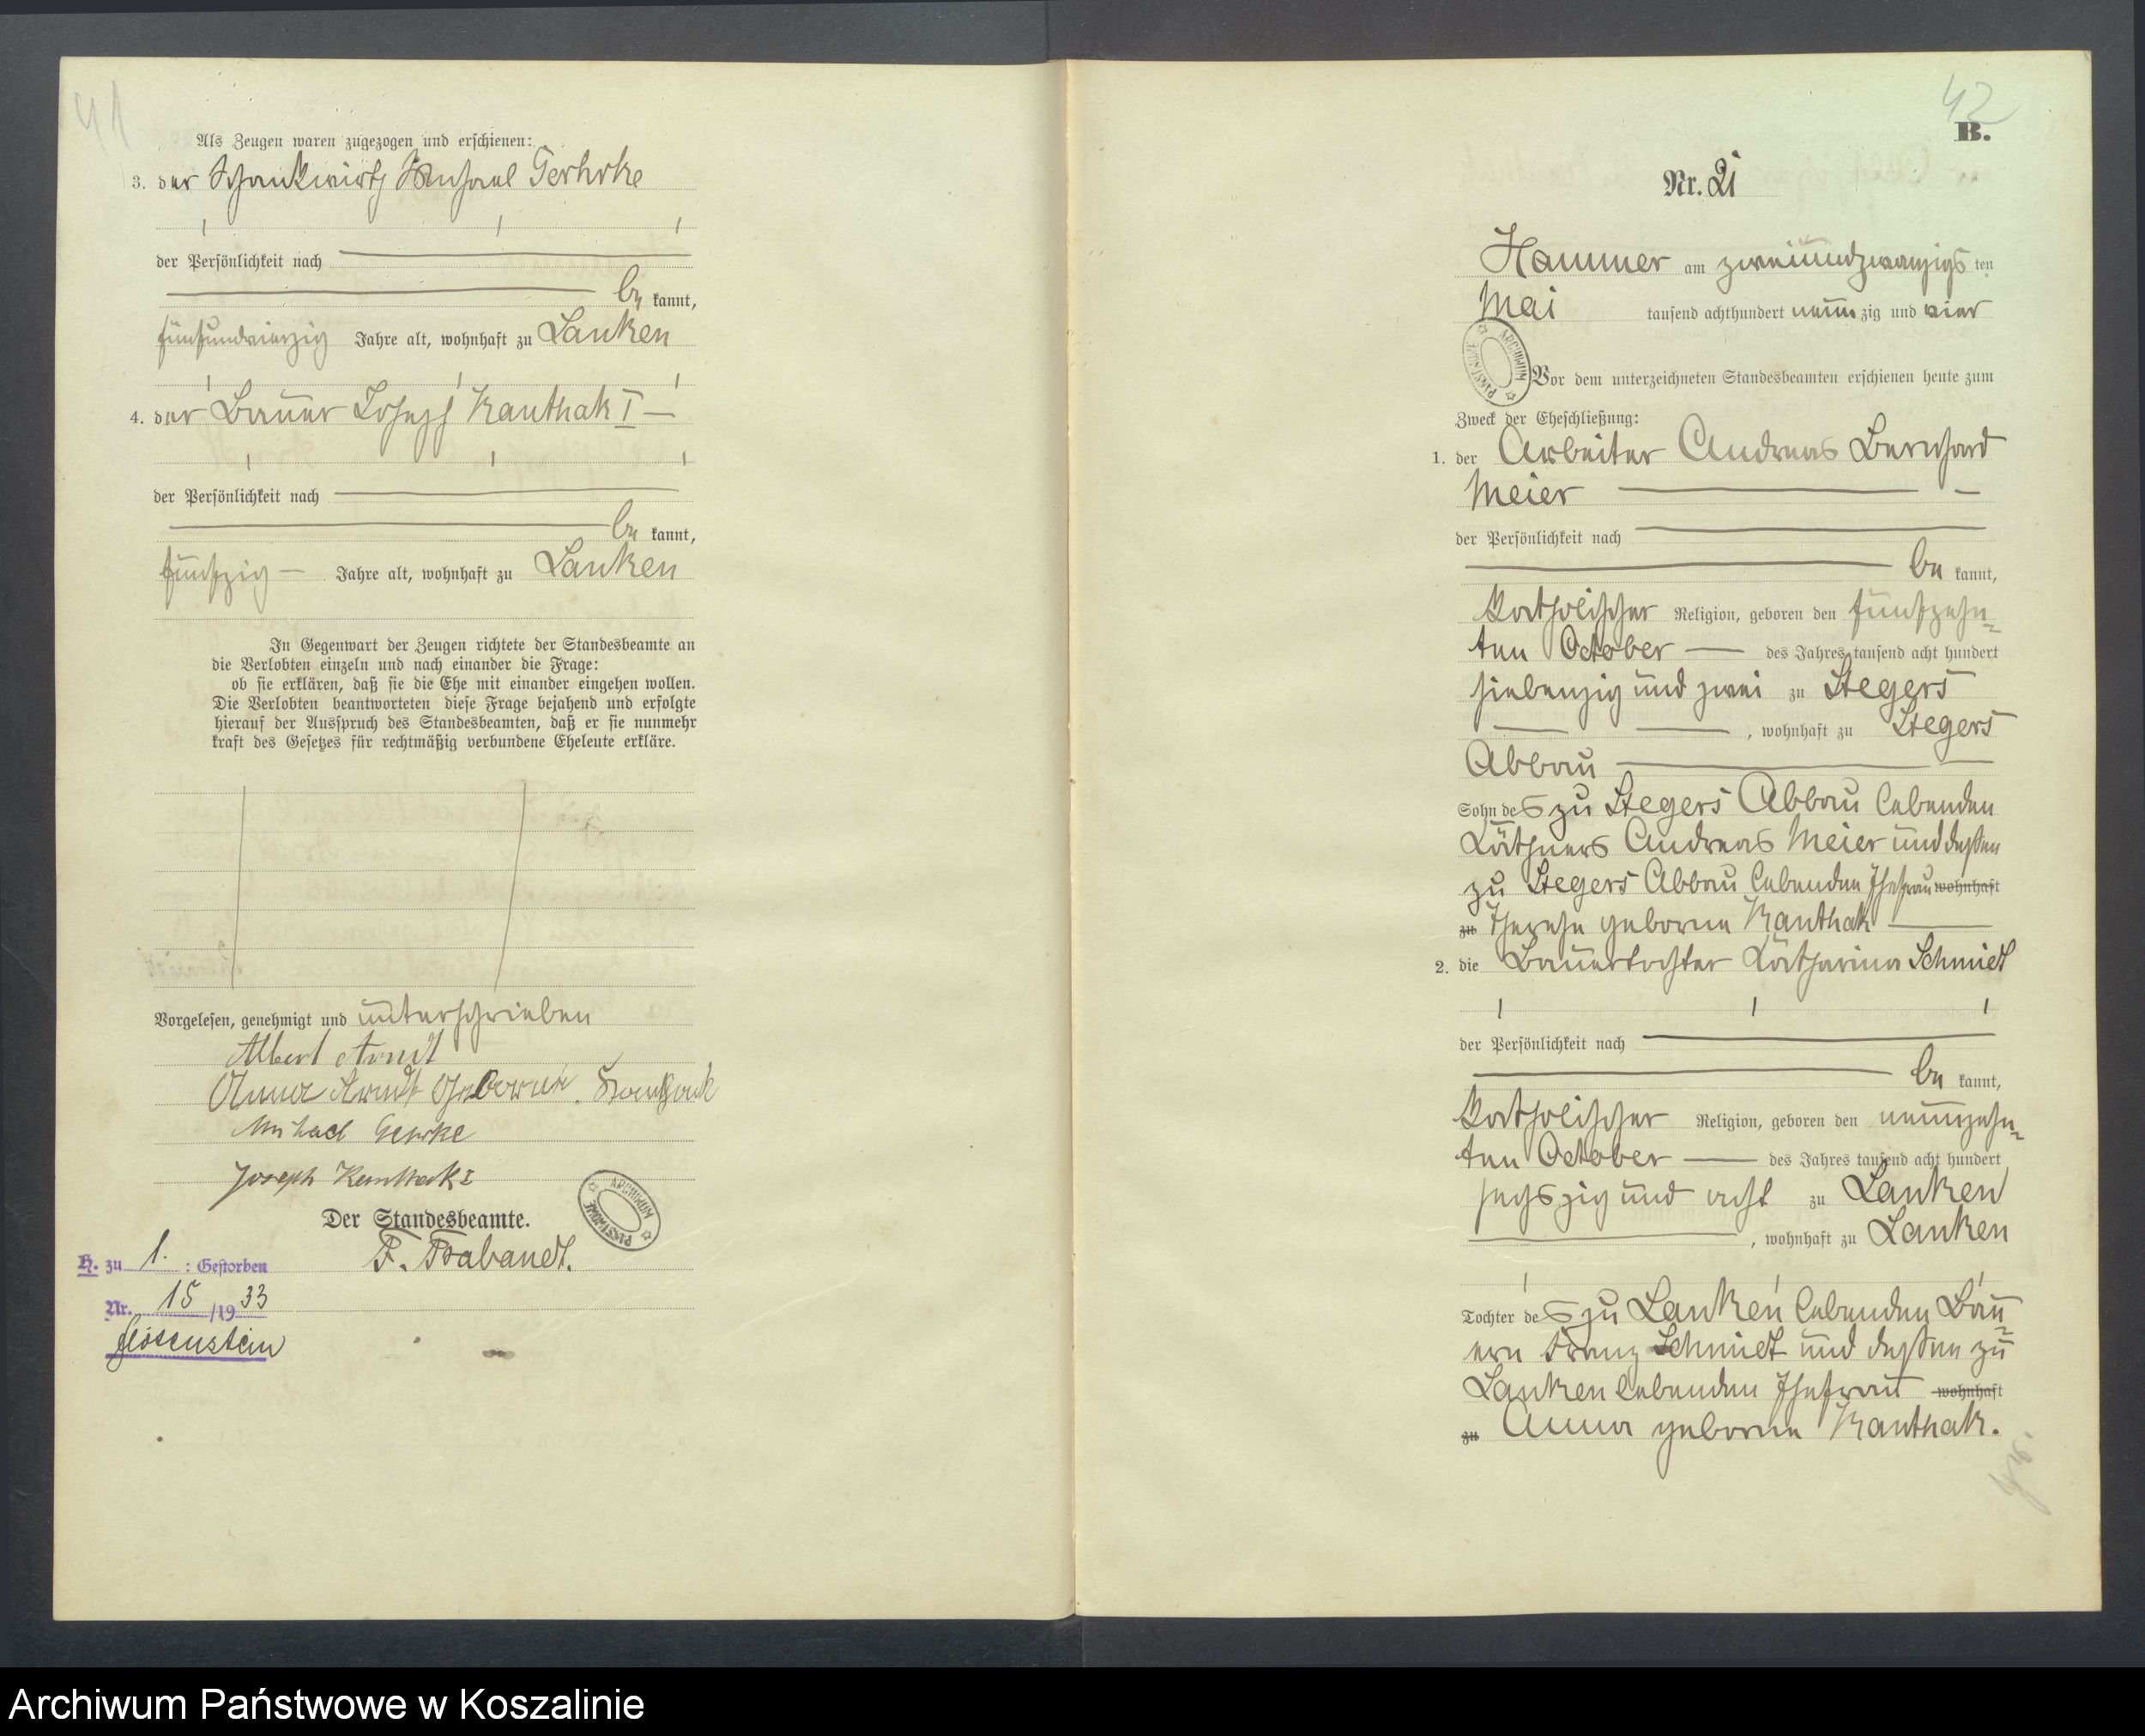 41
Als Zeugen waren zugezogen und erschienen:
3. der Schankwirth Michael Gerhrke
der Persönlichkeit nach
be kannt,
fünfundvierzig Jahre alt, wohnhaft zu Lanken
4. der Bauer Joseph Kanthak I
der Persönlichkeit nach
be kannt,
fünfzig Jahre alt, wohnhaft zu Lanken
In Gegenwart der Zeugen richtete der Standesbeamte an
die Verlobten einzeln und nach einander die Frage:
ob sie erklären, daß sie die Ehe mit einander eingehen wollen.
Die Verlobten beantworteten diese Frage bejahend und erfolgte
hierauf der Ausspruch des Standesbeamten, daß er sie nunmehr
kraft des Gesetzes für rechtmäßig verbundene Eheleute erkläre.
Vorgelesen, genehmigt und unterschrieben
Albert Arndt
Anna Arndt Geborene Kanthack
Michael Gehrke
Joseph Kanthak I
ARCHIWUM PAŃSTWOWE
Der Standesbeamte.
F. Brabandt.
H. zu 1. : Gestorben
Nr. 15 /19 33
Flötenstein
42
B.
Nr. 21
Hammer am zweiundzwanzigs ten
Mai tausend achthundert neun zig und vier
ARCHIWUM PAŃSTWOWE
Vor dem unterzeichneten Standesbeamten erschienen heute zum
Zweck der Eheschließung:
1. der Arbeiter Andreas Bernhard
Meier
der Persönlichkeit nach
be kannt,
katholischer Religion, geboren den fünfzehn-
ten October des Jahres tausend acht hundert
siebenzig und zwei zu Stegers
, wohnhaft zu Stegers
Abbau
Sohn des zu Stegers Abbau lebenden
Käthners Andreas Meier und dessen
zu Stegers Abbau lebenden Ehefrau wohnhaft
zu Therese geborne Kanthak
2. die Bauertochter Katharina Schmidt
der Persönlichkeit nach
be kannt,
katholischer Religion, geboren den neunzehn-
ten October des Jahres tausend acht hundert
sechszig und acht zu Lanken
, wohnhaft zu Lanken
Tochter des zu Lanken lebenden Bau-
ern Franz Schmidt und dessen zu
Lanken lebenden Ehefrau wohnhaft
zu Anna geborne Kanthak.
Archiwum Państwowe w Koszalinie